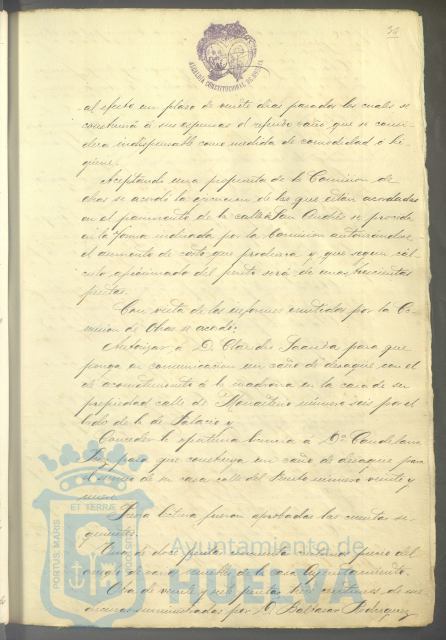 34
ALCALDIA CONSTITUCIONAL DE HUELVA
al efecto un plazo de veinte dias pasados los cuales se
construirá á sus expensas el referido caño que se consi-
dera indispensable como medida de comodidad é hi-
giene.
Aceptando una propuesta de la Comision de
Obras se acordó la de las que estan acordadas
en el pavimento de la calle San Andrés se proceda
en la forma indicada por la Comision autorizándose
el aumento de costo que produzca y que segun cál-
culo aproximado del perito será de unas trescientas
pesetas.
Con vista de los informes emitidos por la Co-
mision de Obras se acordó:
Autorizar á D. Claudio para que
ponga en comunicacion un caño de desagüe con el
de acometimiento á la madrona en la casa de su
propiedad calle de Monasterio número seis por el
lado de la de Palacio y
Conceder la oportuna licencia á Dª Candelaria
para que construya un caño de desagüe para
el de su casa calle del número veinte y
nueve.
Leida fueron aprobadas las cuentas si-
guientes:
Una de doce pesetas cincuenta centimos del
de varios muebles de la casa Ayuntamiento.
Otra de veinte y seis pesetas tres centimos de me-
dicinas suministradas por D. Baltasar Rodriguez
PORTUS MARIS ET TERRAE CUSTODIA
Ayuntamiento de
HUELVA